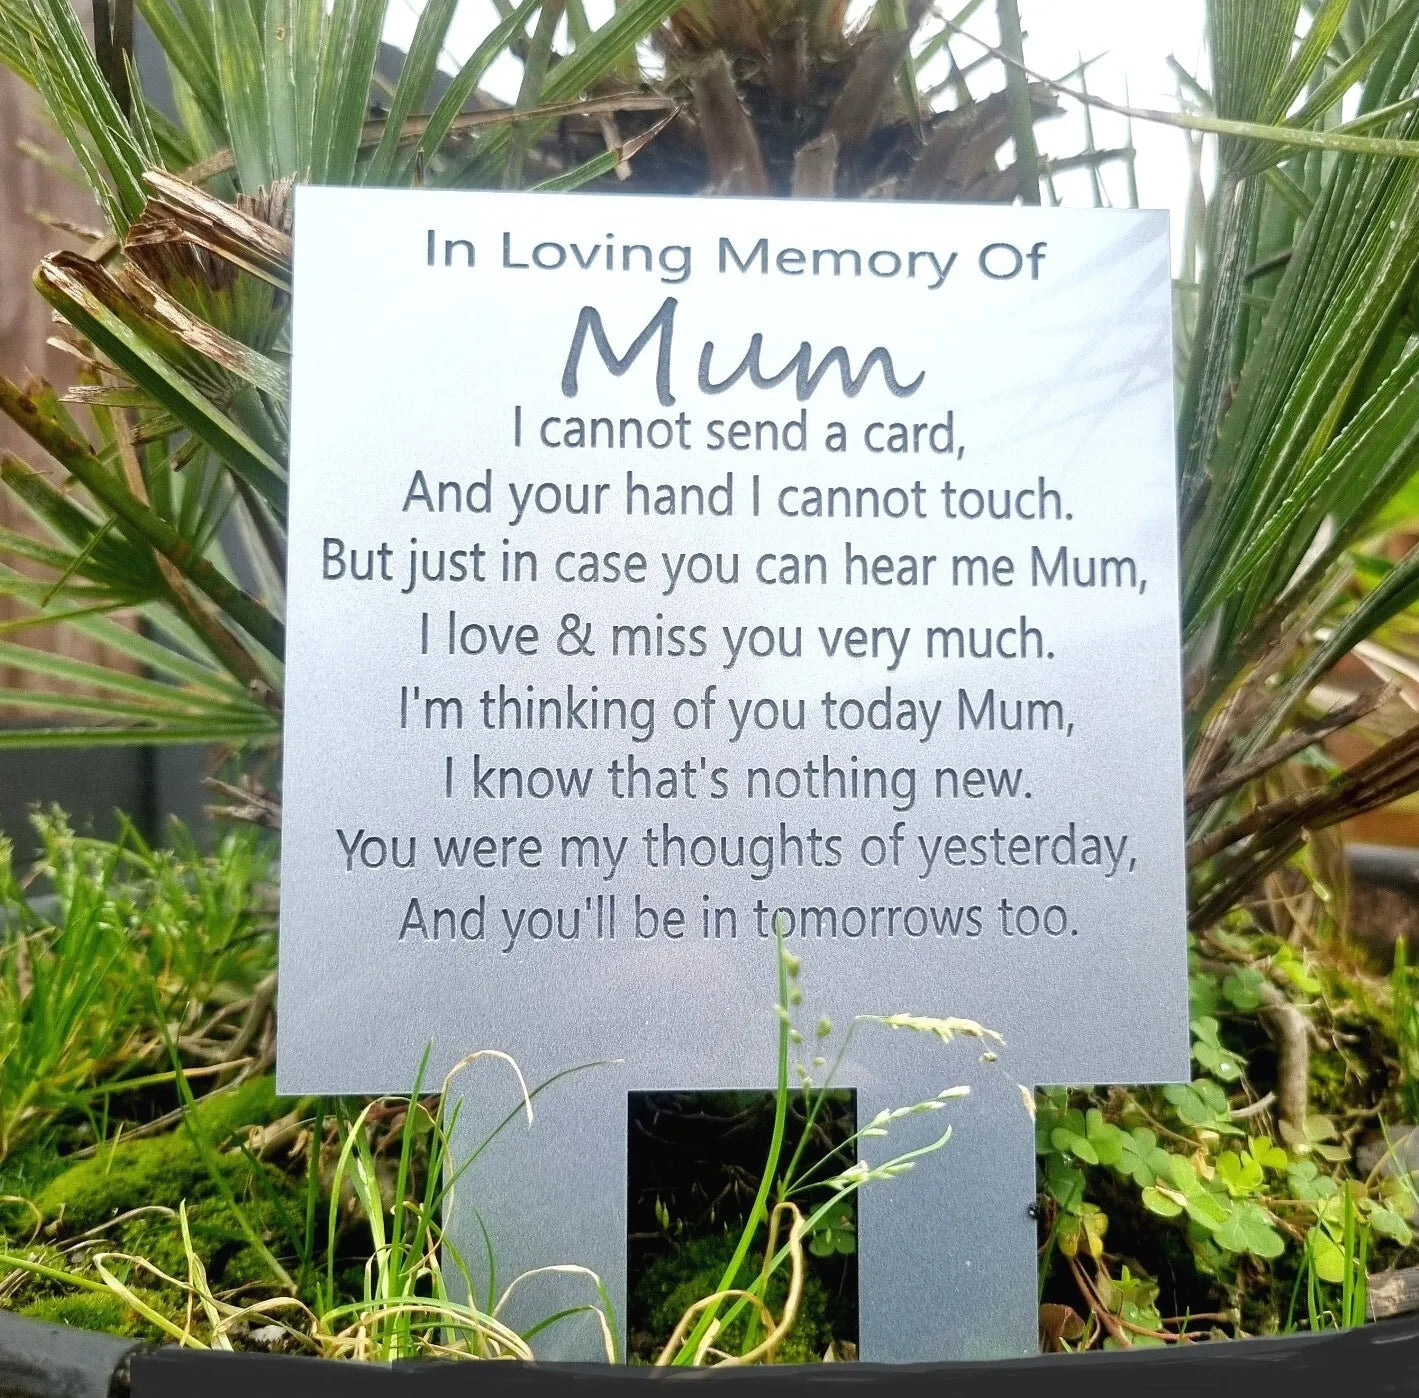 In Loving Memory Of
Mum
I cannot send a card,
And your hand I cannot touch.
But just in case you can hear me Mum,
I love & miss you very much.
I'm thinking of you today Mum,
I know that's nothing new.
You were my thoughts of yesterday,
And you'll be in tomorrows too.